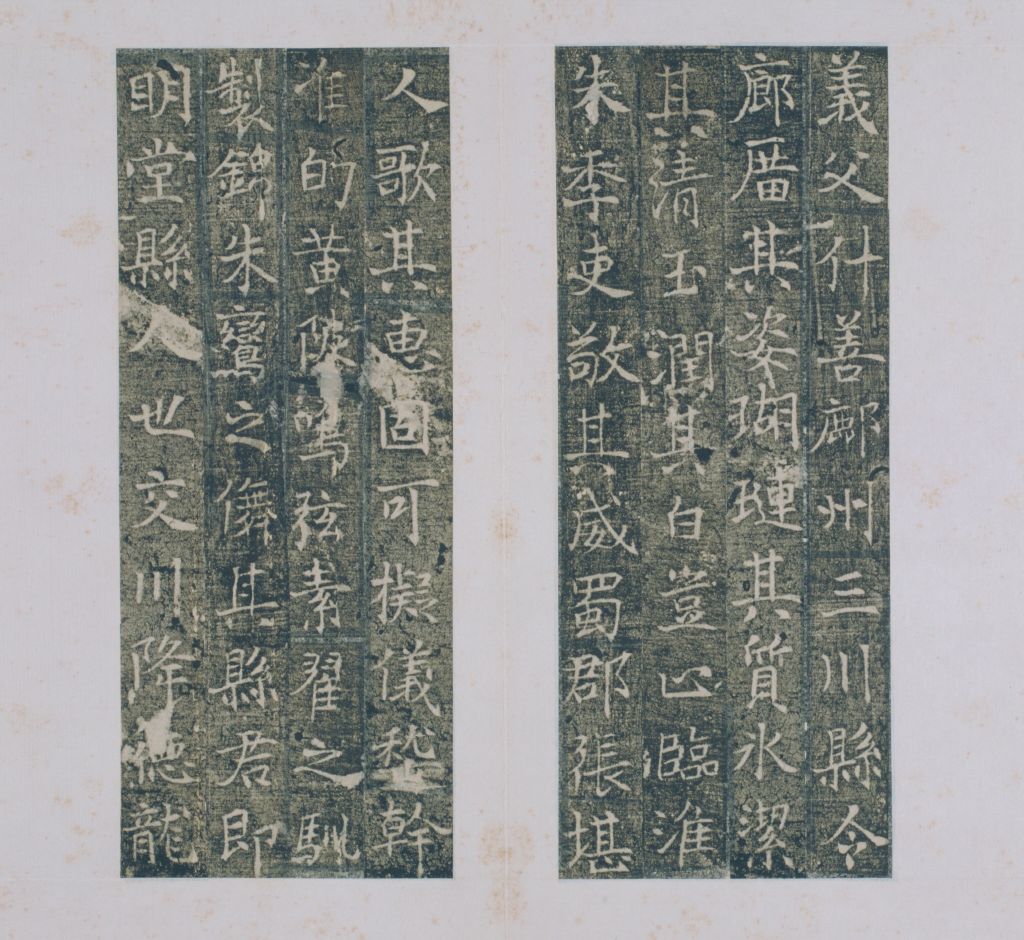 義父什善鄜州三川縣令
廊庿其姿瑚璉其質氷潔
其清玉潤其白豈止臨淮
朱季吏敬其威蜀郡張堪
人歌其惠固可擬儀嵇幹
准的黄陂鳴弦素翟之馴
製錦朱鸞之儛其縣君即
明堂縣人也交川降德龍